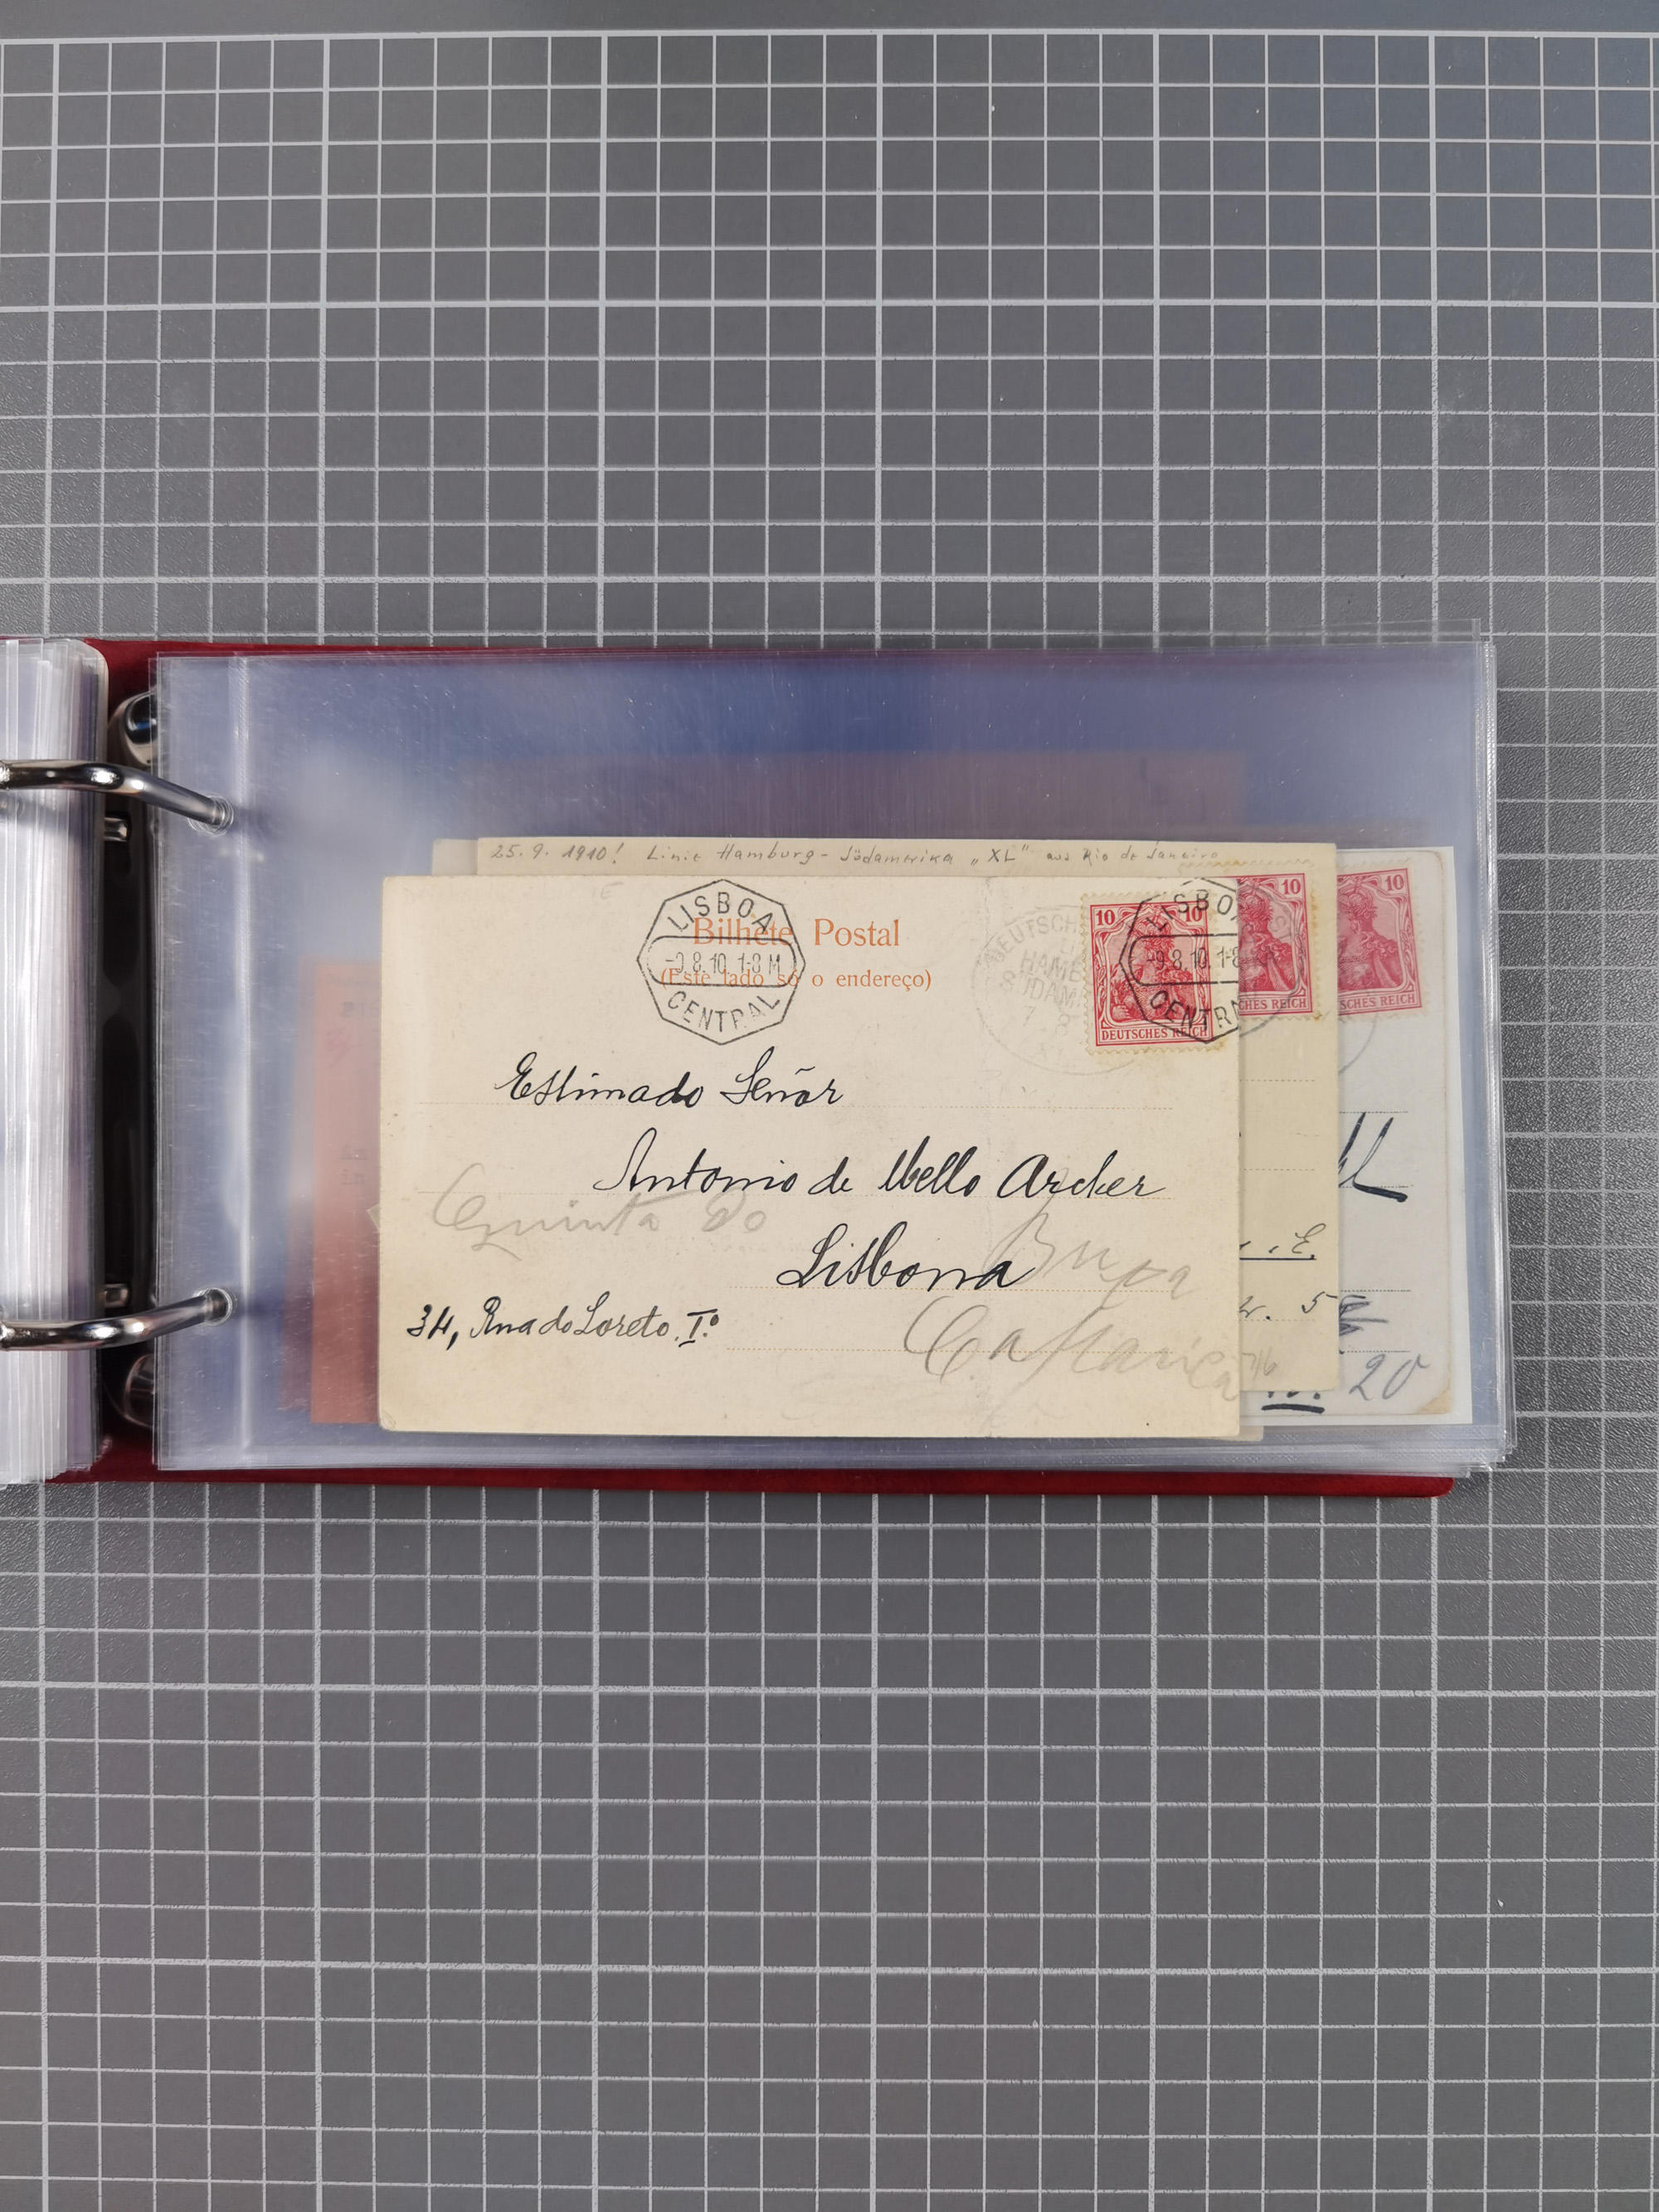 25. 9. 1910! Linie Hamburg - Südamerika „XL" aus Rio de Janeiro
LISBOA
-9.8.10. 1-8 M
CENTRAL
Bilhete Postal
(Este lado só o endereço)
DEUTSCH
HAMB
SÜDAM
LISBOA
-9.8.10. 1-8
CENTRAL
10 10
DEUTSCHES REICH
10
CHES REICH
10
SCHES REICH
Estimado Señor
Antonio de Mello Archer
Quinta do
Lisbona
34, Rua do Loreto, I.º
5
20